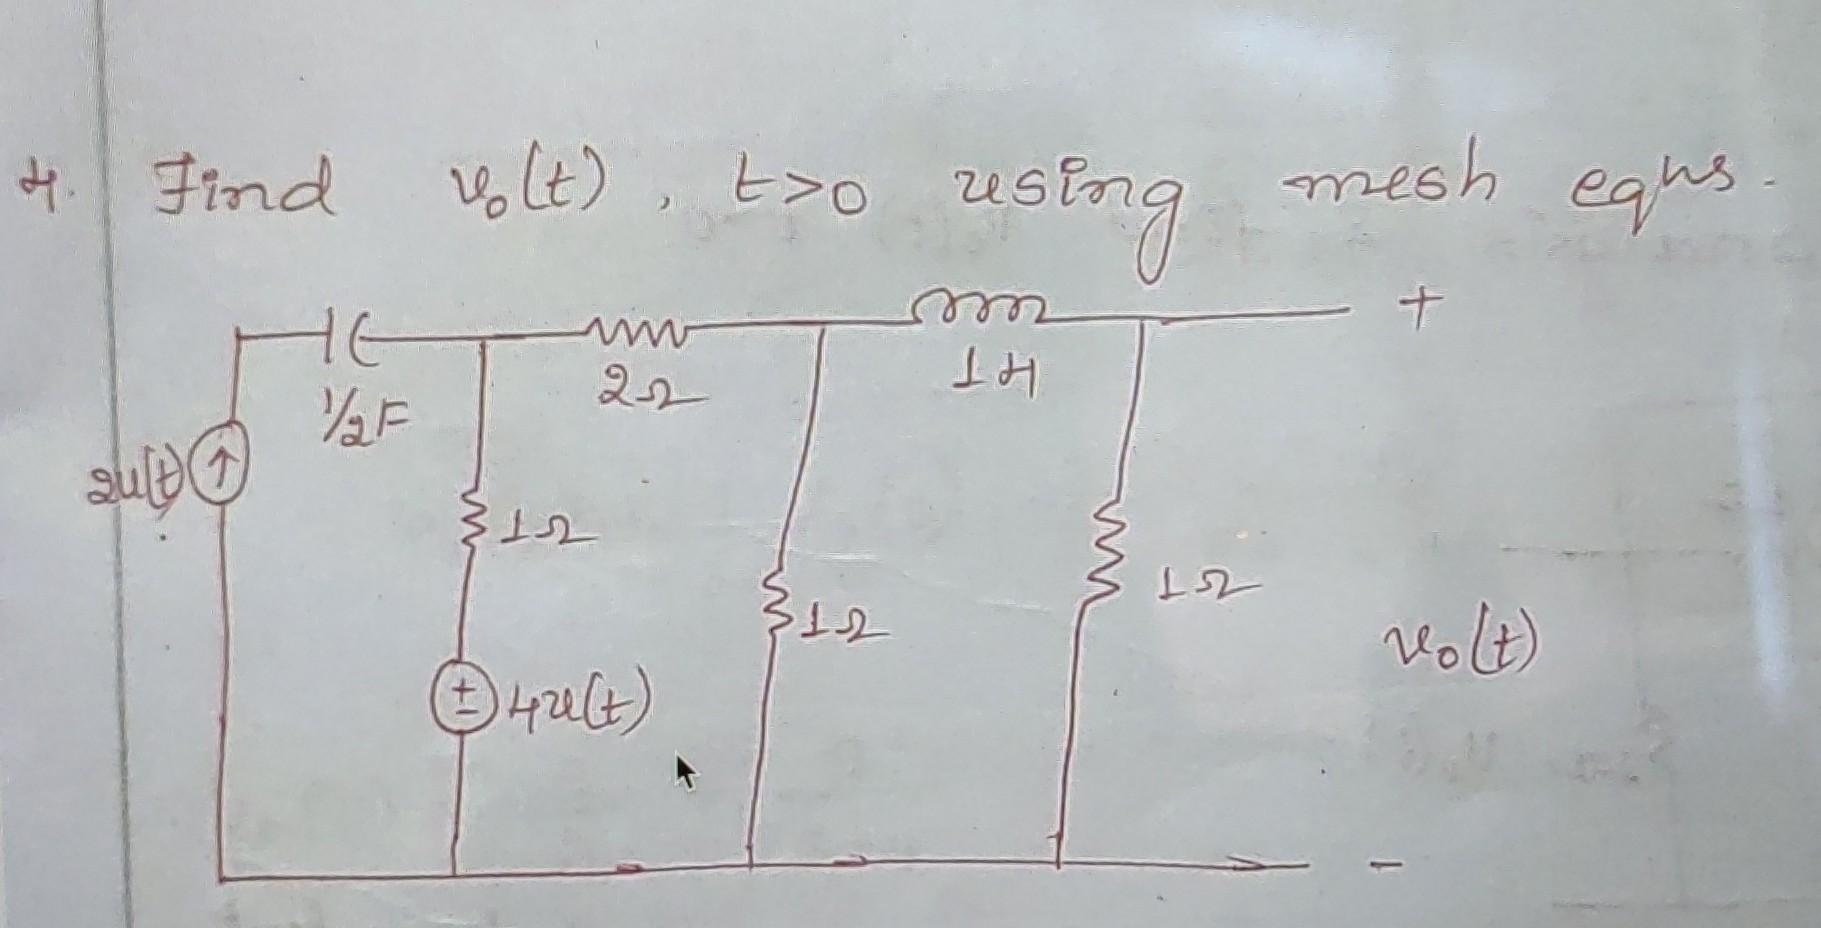 4. Find v₀(t), t>0 using mesh eqns.
+
1/2F
2Ω
1H
2u(t)
1Ω
1Ω
1Ω
v₀(t)
+
-
4u(t)
-